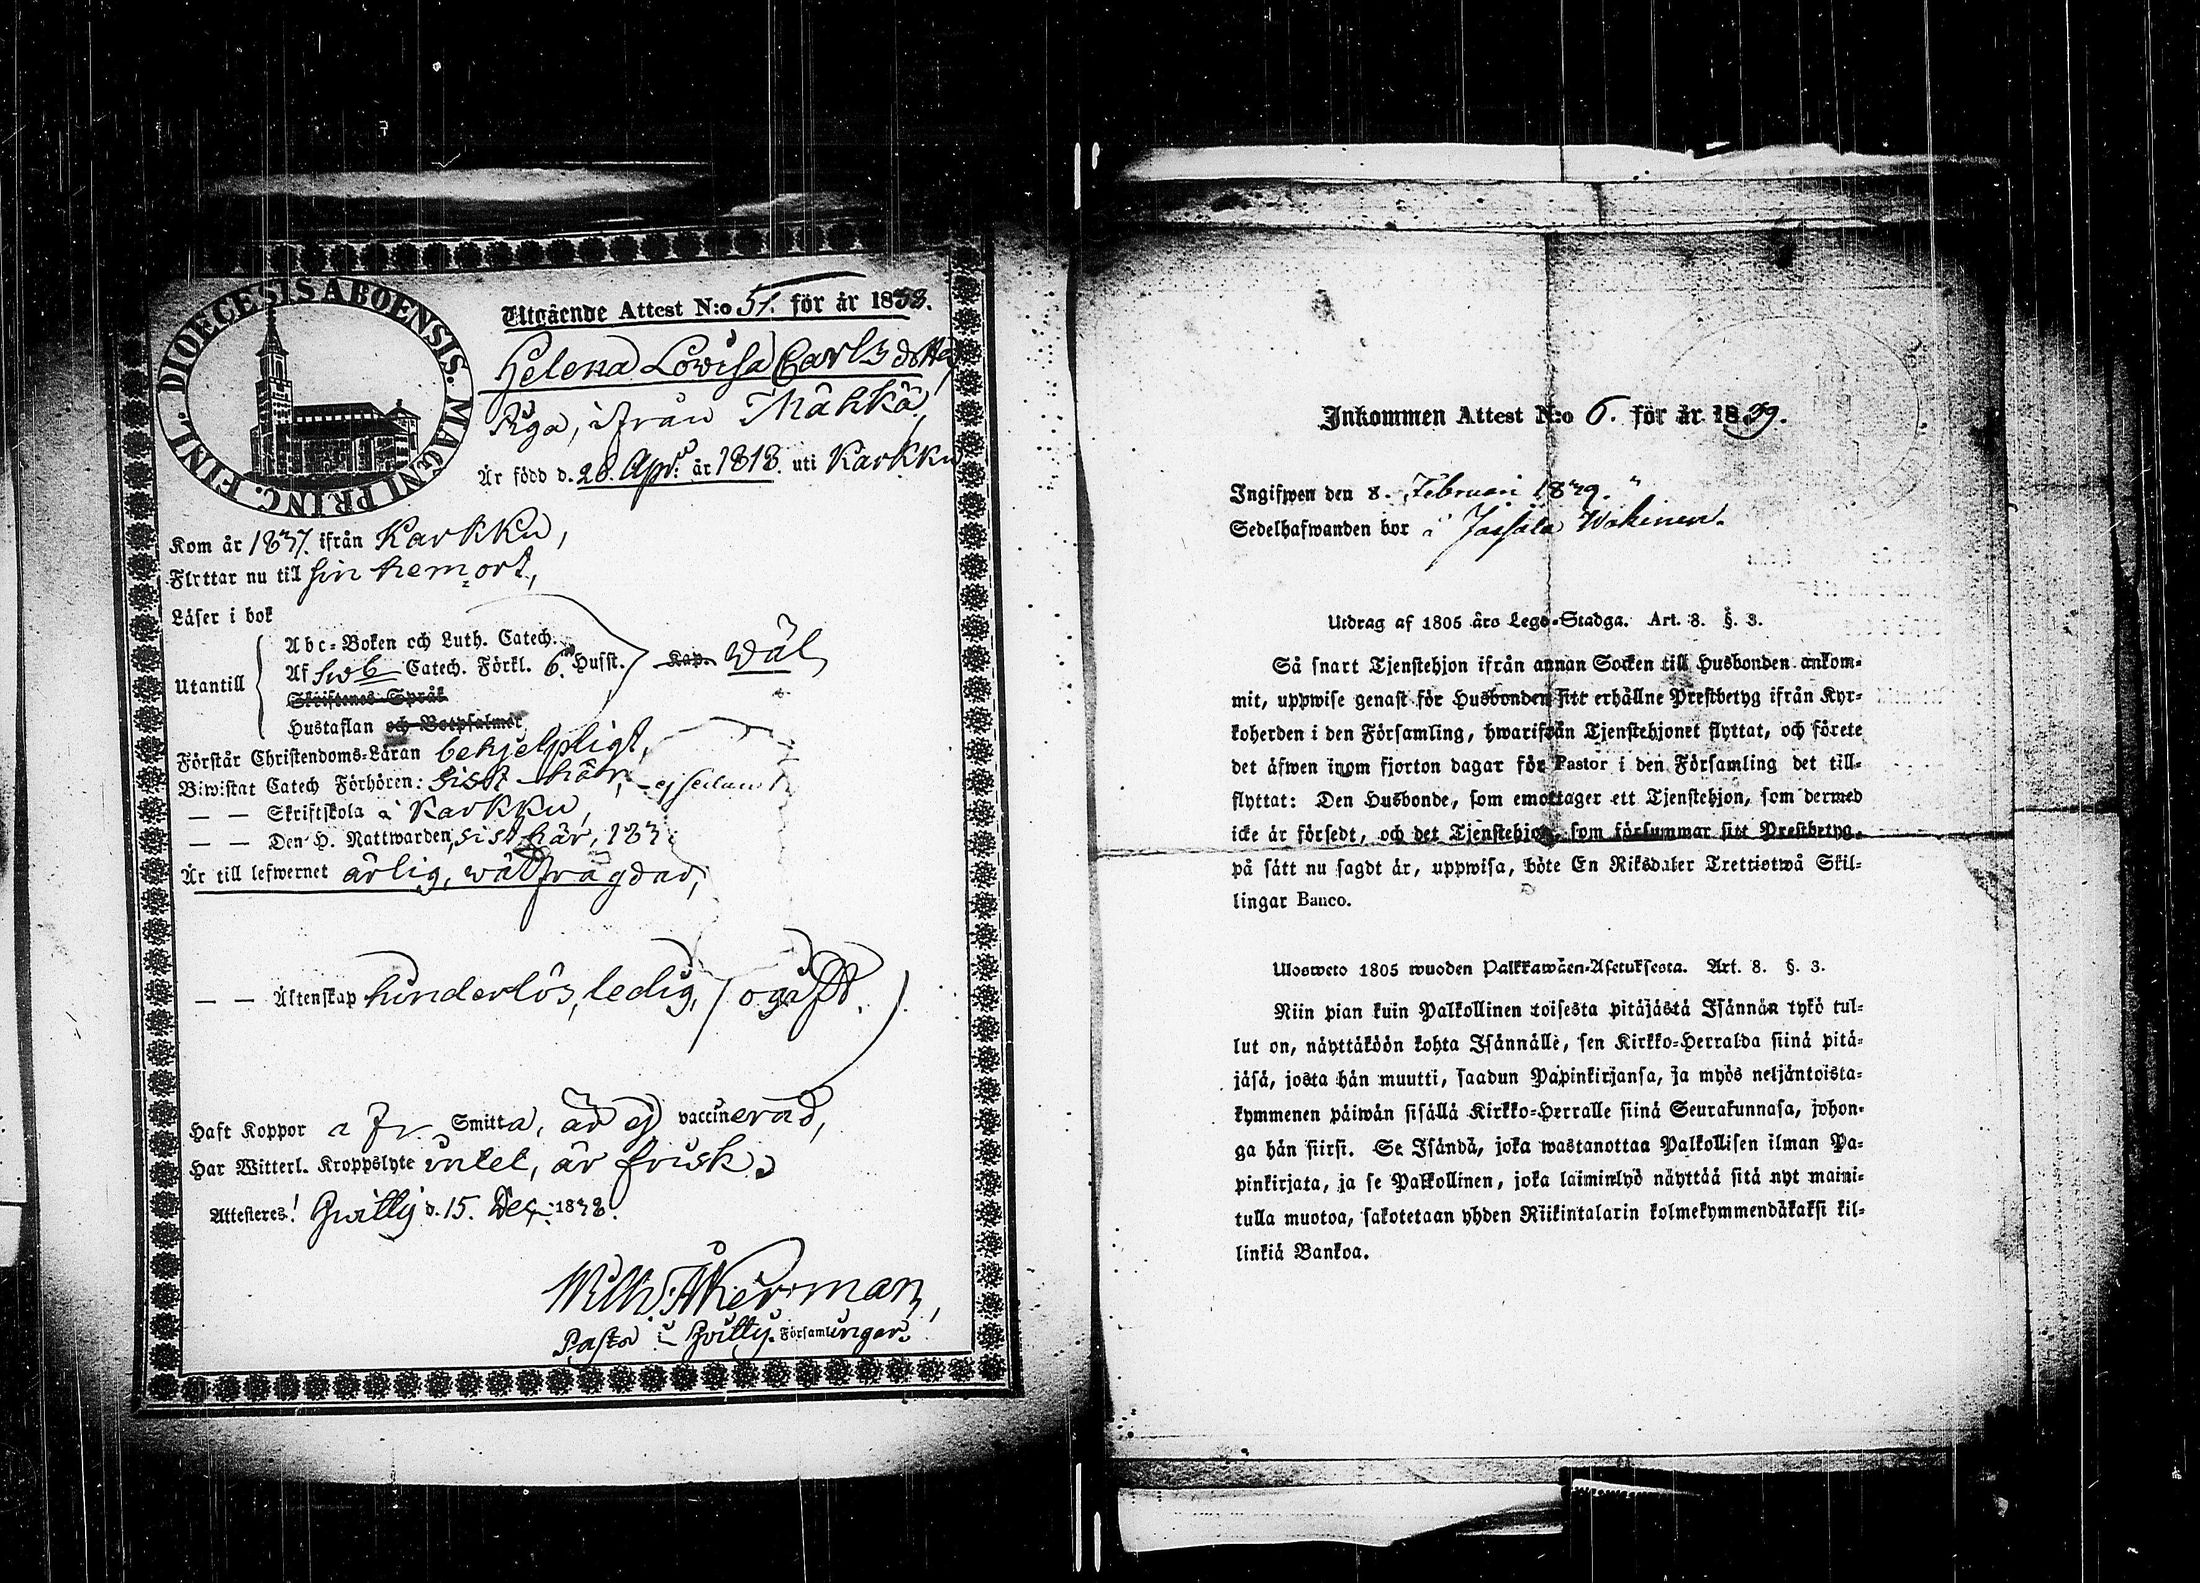 DIOECESIS ABOENSIS. MAGNI PRINC. FINL.
Utgående Attest N:o 51. för år 1838.
Helena Lovisa Carlsdotter
Piga, ifrån Mähkä,
Är född d. 28. Apr. år 1818. uti Karkku
Kom år 1837. ifrån Karkku,
Flyttar nu till sin hemort,
Läser i bok
Utantill
Abc-Boken och Luth. Catech.
Af Sweb Catech. Förkl. 6. Husst. Kap. wäl,
Skriftenes Språk
Hustaflan och Botpsalmer
Förstår Christendoms-Läran behjelpligt,
Biwistat Catech Förhören: sist här, ej sedan
— — Skriftskola i Karkku,
— — Den H. Nattwarden, sist här, 183
Är till lefwernet ärlig, wälfrägdad,
— — Äktenskap hinderlös, ledig, / ogift.
Haft Koppor Smitta, är ej vaccinerad,
Har Witterl. Kroppslyte intet, är frisk.
Attesteres! Hvitti d. 15. Dec. 1838.
Wilh. Åkerman,
Pastor i Hvitti. Församlingar.
Inkommen Attest N:o 6. för år 1839.
Ingifwen den 8. Februari 1839.
Sedelhafwanden bor i
Utdrag af 1805 års Lego-Stadga. Art. 8. §. 3.
Så snart Tjenstehjon ifrån annan Socken till Husbonden ankom-
mit, uppwise genast för Husbonden sitt erhållne Prestbetyg ifrån Kyr-
koherden i den Församling, hwarifrån Tjenstehjonet flyttat, och förete
det äfwen inom fjorton dagar för Pastor i den Församling det till-
flyttat: Den Husbonde, som emottager ett Tjenstehjon, som dermed
icke är försedt, och det Tjenstehjon, som försummar sitt Prestbetyg,
på sätt nu sagdt är, uppwisa, böte En Riksdaler Trettiotwå Skil-
lingar Banco.
Ulosweto 1805 wuoden Palkkawäen-Asetuksesta. Art. 8. §. 3.
Niin pian kuin Palkollinen toisesta pitäjästä Isännän tykö tul-
lut on, näyttäköön kohta Isännälle, sen Kirkko-Herralda siinä pitä-
jäsä, josta hän muutti, saadun Papinkirjansa, ja myös neljäntoista-
kymmenen päiwän sisällä Kirkko-Herralle siinä Seurakunnasa, johon-
ga hän siirsi. Se Isändä, joka wastanottaa Palkollisen ilman Pa-
pinkirjata, ja se Palkollinen, joka laiminlyö näyttää sitä nyt maini-
tulla muotoa, sakotetaan yhden Riikintalarin kolmekymmendäkaksi kil-
linkiä Bankoa.